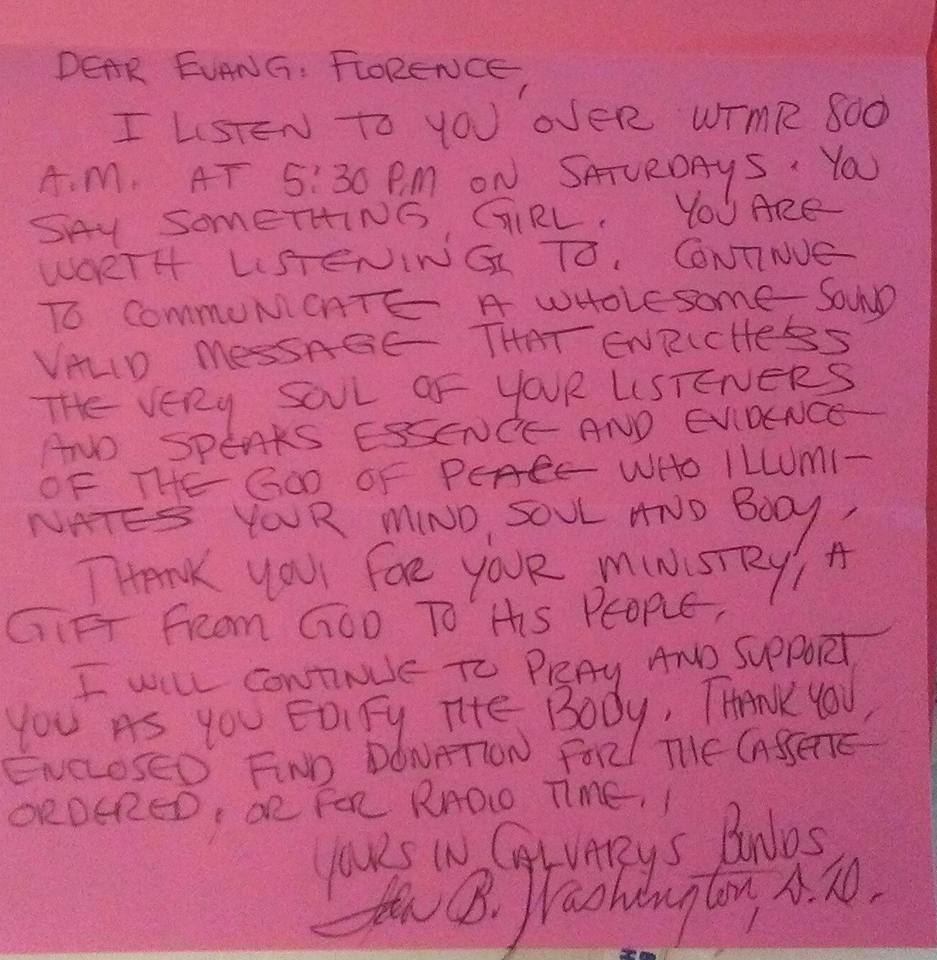 DEAR EVANG. FLORENCE,
I LISTEN TO YOU OVER WTMR 800
A.M. AT 5:30 P.M ON SATURDAYS. YOU
SAY SOMETHING, GIRL. YOU ARE
WORTH LISTENING TO. CONTINUE
TO COMMUNICATE A WHOLESOME SOUND
VALID MESSAGE THAT ENRICHESS
THE VERY SOUL OF YOUR LISTENERS
AND SPEAKS ESSENCE AND EVIDENCE
OF THE GOD OF PEACE WHO ILLUMI-
NATES YOUR MIND, SOUL AND BODY.
THANK YOU! FOR YOUR MINISTRY, A
GIFT FROM GOD TO HIS PEOPLE.
I WILL CONTINUE TO PRAY AND SUPPORT
YOU AS YOU EDIFY THE BODY. THANK YOU.
ENCLOSED FIND DONATION FOR THE CASSETTE
ORDERED, OR FOR RADIO TIME.
YOURS IN CALVARYS BONDS,
B. Washington, D.D.